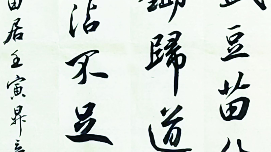 盛豆苗
鋤歸道
沾不足
田居壬寅